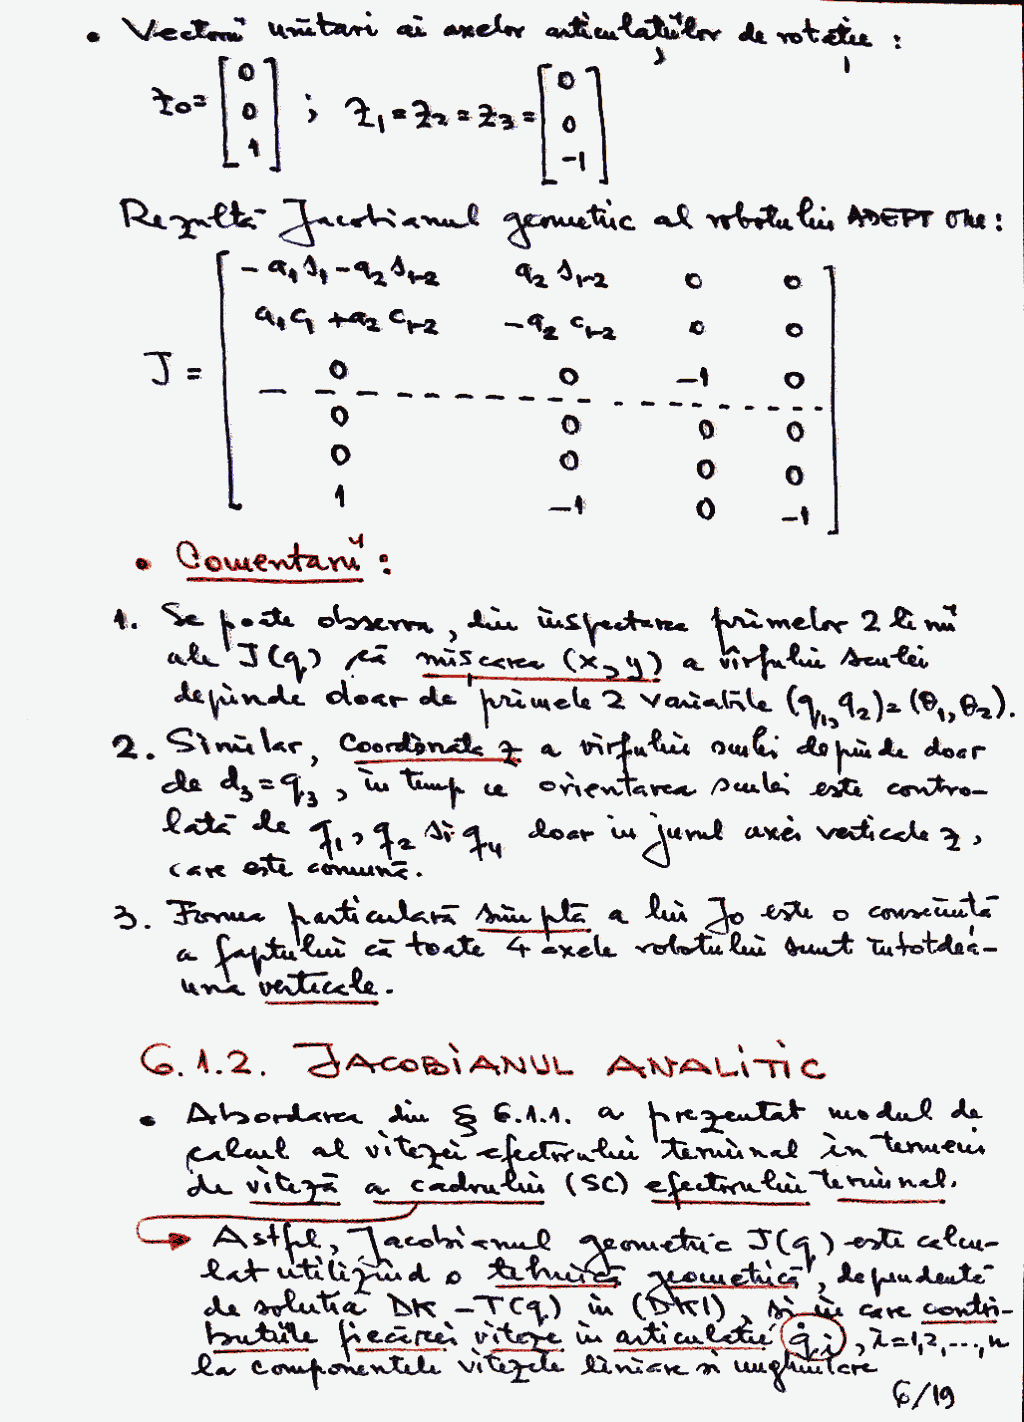 • Vectorii unitari ai axelor articulațiilor de rotație :
z0 = [0 0 1] ; z1 = z2 = z3 = [0 0 -1]
Rezultă Jacobianul geometric al robotului ADEPT One :
-a1 s1 - a2 s1-2   a2 s1-2   0   0
a1 c1 + a2 c1-2   -a2 c1-2   0   0
J =   0   0   -1   0
0   0   0   0
0   0   0   0
1   -1   0   -1
• Comentarii :
1. Se poate observa, din inspectarea primelor 2 linii
ale J(q) că mișcarea (x, y) a vîrfului sculei
depinde doar de primele 2 variabile (q1, q2) = (θ1, θ2).
2. Similar, coordonata z a vîrfului sculei depinde doar
de d3 = q3, în timp ce orientarea sculei este contro-
lată de q1, q2 și q4 doar în jurul axei verticale z,
care este comună.
3. Forma particulară simplă a lui J0 este o consecință
a faptului că toate 4 axele robotului sunt întotdea-
una verticale.
6.1.2. JACOBIANUL ANALITIC
• Abordarea din § 6.1.1. a prezentat modul de
calcul al vitezei efectorului terminal în termeni
de viteză a cadrului (SC) efectorului terminal.
Astfel, Jacobianul geometric J(q) este calcu-
lat utilizînd o tehnică geometrică, dependentă
de soluția DK - T(q) în (DK1), și în care contri-
buțiile fiecărei viteze în articulație q̇i, i=1,2,...,n
la componentele vitezele liniare și unghiulare
6/19